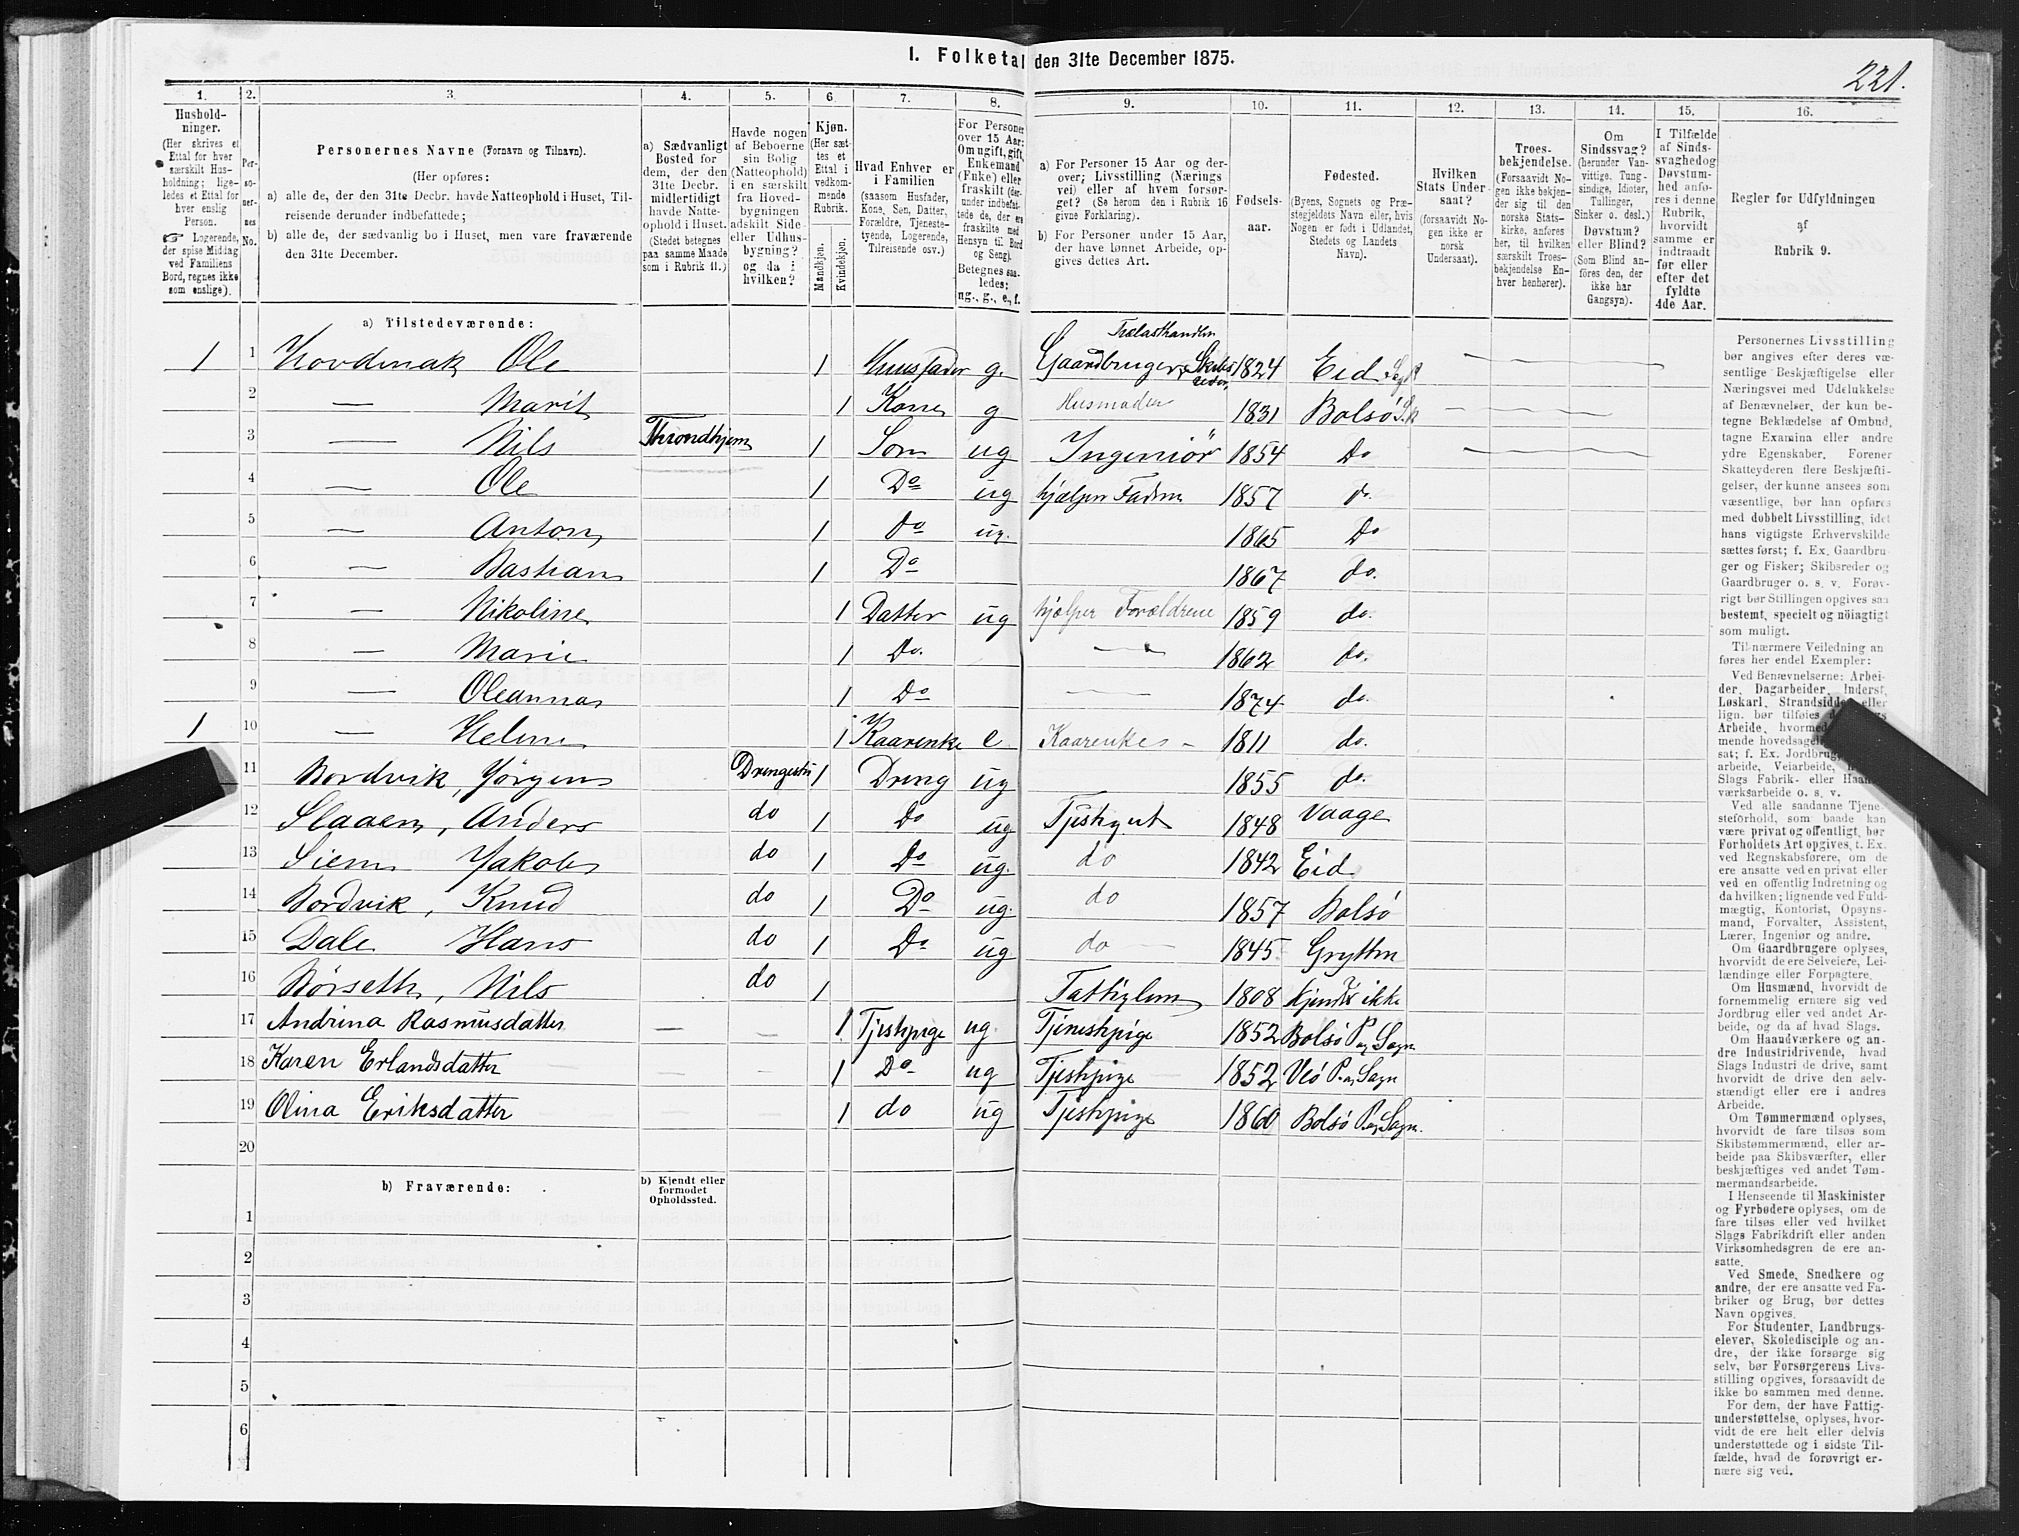 I. Folketal den 31te December 1875.
221.
1. 2. 3. 4. 5. 6. 7. 8. 9. 10. 11. 12. 13. 14. 15. 16.
Hushold-
ninger.
(Her skrives et
Ettal for hver
særskilt Hus-
holdning; lige-
ledes et Ettal for
hver enslig
Person.
☞ Logerende,
der spise Middag
ved Familiens
Bord, regnes ikke
som enslige).
Per-
so-
ner-
nes
No.
Personernes Navne (Fornavn og Tilnavn).
(Her opføres:
a) alle de, der den 31te Decbr. havde Natteophold i Huset, Til-
reisende derunder indbefattede;
b) alle de, der sædvanlig bo i Huset, men vare fraværende
den 31te December.
a) Sædvanligt
Bosted for
dem, der den
31te Decbr.
midlertidigt
havde Natte-
ophold i Huset.
(Stedet betegnes
paa samme Maade
som i Rubrik 11.)
Havde nogen
af Beboerne
sin Bolig
(Natteophold)
i en særskilt
fra Hoved-
bygningen
adskilt Side-
eller Udhus-
bygning?
og da i
hvilken?
Kjøn.
(Her sæt-
tes et
Ettal i
vedkom-
mende
Rubrik.
Mandkjøn.
Kvindekjøn.
Hvad Enhver er
i Familien
(saasom Husfader,
Kone, Søn, Datter,
Forældre, Tjeneste-
tyende, Logerende,
Tilreisende osv.)
For Personer
over 15 Aar:
Om ugift, gift,
Enkemand
(Enke) eller
fraskilt (der-
under indbefat-
tede de, der ere
fraskilte med
Hensyn til Bord
og Seng).
Betegnes saa-
ledes:
ug., g., e., f.
a) For Personer 15 Aar og der-
over; Livsstilling (Nærings
vei) eller af hvem forsør-
get? (Se herom den i Rubrik 16
givne Forklaring).
b) For Personer under 15 Aar,
der have lønnet Arbeide, op-
gives dettes Art.
Fødsels-
aar.
Fødested.
(Byens, Sognets og Præ-
stegjeldets Navn eller, hvis
Nogen er født i Udlandet,
Stedets og Landets
Navn).
Hvilken
Stats Under-
saat?
(forsaavidt No-
gen ikke er
norsk
Undersaat).
Troes-
bekjendelse.
(Forsaavidt No-
gen ikke bekjen-
der sig til den
norske Stats-
kirke, anføres
her, til hvilken
særskilt Troes-
bekjendelse En-
hver henhører).
Om
Sindssvag?
(herunder Van-
vittige, Tung-
sindige, Idioter,
Tullinger,
Sinker o. desl.)
Døvstum?
eller Blind?
(Som Blind an-
føres den, der
ikke har
Gangsyn).
I Tilfælde
af Sinds-
svaghed og
Døvstum-
hed anfø-
res i denne
Rubrik,
hvorvidt
samme er
indtraadt
før eller
efter det
fyldte
4de Aar.
Regler for Udfyldningen
af
Rubrik 9.
a) Tilstedeværende:
Trælasthandler
1 1 Hovdenak Ole 1 Huusfader g. Gaardbruger, Skibs 1824 Eid
reder
2 — Marit 1 Kone g Husmoder 1831 Bolsø
3 — Nils Throndhjem 1 Søn ug Ingeniør 1854 Do
4 — Ole 1 Do ug hjælper Faderen 1857 do.
5 — Anton 1 do ug. 1865 Do
6 — Bastian 1 Do 1867 do.
7 — Nikoline 1 Datter ug hjælper Forældrene 1859 do.
8 — Marie 1 Do. — 1862 do.
9 — Oleanna 1 Do — 1874 do.
1 10 — Helene 1 Kaarenke e Kaarenke 1811 do.
11 Nordvik, Jørgen Drengestu 1 Dreng ug 1855 do.
12 Slaaen, Anders do 1 Do ug Tjeskgut 1848 Vaage
13 Siem Jakob do 1 Do ug. do 1842 Eid
14 Nordvik, Knud do 1 Do ug. do 1857 Bolsø
15 Dale Hans do 1 Do ug do 1845 Grytten
16 Nørseth, Nils do 1 Fattiglem 1808 Kjendes ikke
17 Andrina Rasmusdatter — 1 Tjeskpige ug. Tjeneskpige 1852 Bolsø P og Sogn
18 Karen Erlandsdatter — 1 Do ug Tjeskpige 1852 Veø P. og Sogn
19 Olina Eriksdatter 1 do ug Tjeskpige 1860 Bolsø P. og Sogn.
20
b) Fraværende:
b) Kjendt eller
formodet
Opholdssted.
1
2
3
4
5
6
Personernes Livsstilling
bør angives efter deres væ-
sentlige Beskjæftigelse eller
Næringsvei med Udelukkelse
af Benævnelser, der kun be-
tegne Beklædelse af Ombud,
tagne Examina eller andre
ydre Egenskaber. Forener
Skatteyderen flere Beskjæfti-
gelser, der kunne ansees som
væsentlige, bør han opføres
med dobbelt Livsstilling, idet
hans vigtigste Erhvervskilde
sættes først; f. Ex. Gaardbru-
ger og Fisker; Skibsreder og
Gaardbruger o. s. v. Forøv-
rigt bør Stillingen opgives saa
bestemt, specielt og nøiagtigt
som muligt.
Til nærmere Veiledning an
føres her endel Exempler:
Ved Benævnelserne: Arbei-
der, Dagarbeider, Inderst,
Løskarl, Strandsidder eller
lign. bør tilføies
Arbeide, hvormed
mende hovedsagel
sat; f. Ex. Jordbrug
arbeide, Veiarbeide,
Slags Fabrik- eller Haand
værksarbeide o. s. v.
Ved alle saadanne Tjene-
steforhold, som baade kan
være privat og offentligt, bør
Forholdets Art opgives, t. Ex.
ved Regnskabsførere, om de
ere ansatte ved en privat eller
ved en offentlig Indretning og
da hvilken; lignende ved Fuld-
mægtig, Kontorist, Opsyns-
mand, Forvalter, Assistent,
Lærer, Ingeniør og andre.
Om Gaardbrugere oplyses,
hvorvidt de ere Selveiere, Lei-
lændinge eller Forpagtere.
Om Husmænd, hvorvidt de
fornemmelig ernære sig ved
Jordbrug eller ved andet Ar-
beide, og da af hvad Slags.
Om Haandværkere og an-
dre Industridrivende, hvad
Slags Industri de drive, samt
hvorvidt de drive den selv-
stændigt eller ere i andres
Arbeide.
Om Tømmermænd oplyses,
hvorvidt de fare tilsøs som
Skibstømmermænd, eller ar-
beide paa Skibsværfter, eller
beskjæftiges ved andet Tøm-
mermandsarbeide.
I Henseende til Maskinister
og Fyrbødere oplyses, om de
fare tilsøs eller ved hvilket
Slags Fabrikdrift eller anden
Virksomhedsgren de ere an-
satte.
Ved Smede, Snedkere og
andre, der ere ansatte ved Fa-
briker og Brug, bør dettes
Navn opgives.
For Studenter, Landbrugs-
elever, Skoledisciple og an-
dre, der ikke forsørge sig
selv, bør Forsørgerens Livs-
stilling opgives, forsaavidt de
ikke bo sammen med denne.
For dem, der have Fattig-
understøttelse, oplyses, hvor-
vidt de ere helt eller delvis
understøttede og i sidste Til-
fælde, hvad de forøvrigt er-
nære sig ved.